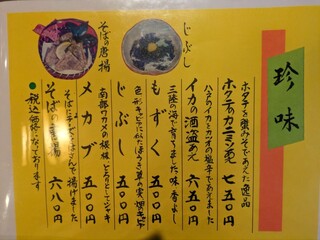 珍味
ホタテを蟹みそであえた逸品
ホタテのカニミソ和え 七五〇円
ハチのイカとカツオの塩辛であえました
イカの酒盗あえ 六五〇円
三陸の海で育てました 味香よし
もずく 五〇〇円
じぶし 五〇〇円
南部ワカメの根株 とろりとしてシャキ
メカブ 五〇〇円
そばに子でんぷんで揚げました
そばの唐揚 六八〇円
●税込価格になっております
じぶし
そばの唐揚